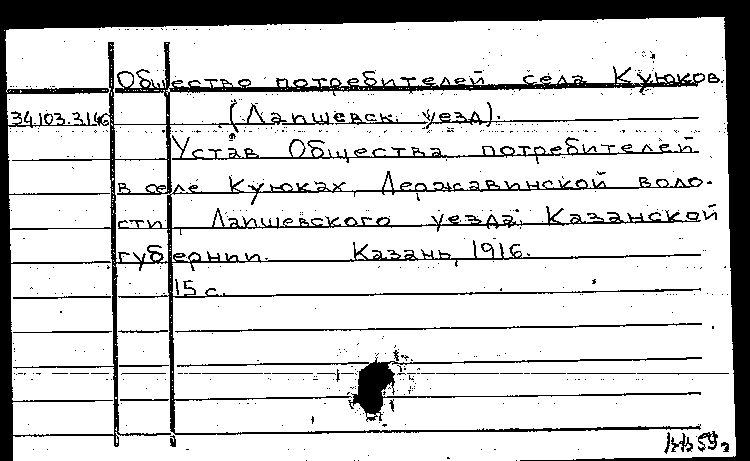 Общество потребителей села Куюков
34.103.3146 (Лапшевск. уезд).
Устав Общества потребителей
в селе Куюках, Державинской воло-
сти, Лапшевского уезда, Казанской
губернии. Казань, 1916.
15 с.